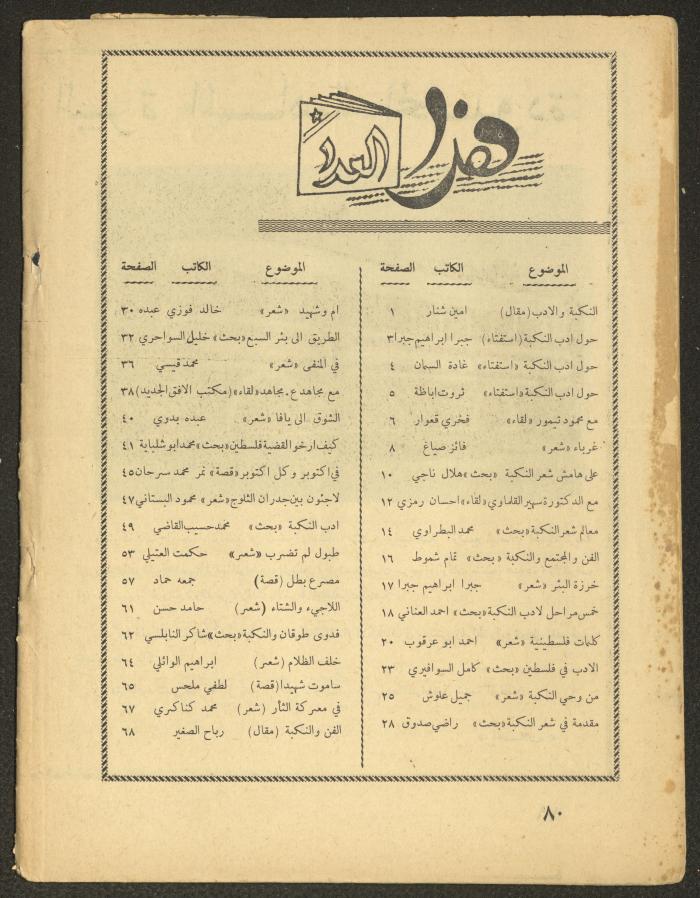 هذا العدد
الموضوع الكاتب الصفحة
النكبة والادب (مقال) امين شنار ١
حول ادب النكبة (استفتاء) جبرا ابراهيم جبرا ٣
حول ادب النكبة «استفتاء» غادة السمان ٤
حول ادب النكبة «استفتاء» ثروت اباظة ٥
مع محمود تيمور «لقاء» فخري قعوار ٦
غرباء «شعر» فائز صياغ ٨
على هامش شعر النكبة «بحث» هلال ناجي ١٠
مع الدكتورة سهير القلماوي «لقاء» احسان رمزي ١٢
معالم شعر النكبة «بحث» محمد البطراوي ١٤
الفن والمجتمع والنكبة «بحث» تمام شموط ١٦
خرزة البئر «شعر» جبرا ابراهيم جبرا ١٧
خمس مراحل لادب النكبة «بحث» احمد العناني ١٨
كلمات فلسطينية «شعر» احمد ابو عرقوب ٢٠
الادب في فلسطين «بحث» كامل السوافيري ٢٣
من وحي النكبة «شعر» جميل علوش ٢٥
مقدمة في شعر النكبة «بحث» راضي صدوق ٢٨
الموضوع الكاتب الصفحة
ام وشهيد «شعر» خالد فوزي عبده ٣٠
الطريق الى بئر السبع «بحث» خليل السواحري ٣٢
في المنفى «شعر» محمد قيسي ٣٦
مع مجاهد ع. مجاهد «لقاء» (مكتب الافق الجديد) ٣٨
الشوق الى يافا «شعر» عبده بدوي ٤٠
كيف ارخوا لقضية فلسطين «بحث» محمد ابو شلباية ٤١
في اكتوبر وكل اكتوبر «قصة» نمر محمد سرحان ٤٥
لاجئون بين جدران الثلوج «شعر» محمود البستاني ٤٧
ادب النكبة «بحث» محمد حسيب القاضي ٤٩
طبول لم تضرب «شعر» حكمت العتيلي ٥٣
مصرع بطل (قصة) جمعه حماد ٥٧
اللاجيء والشتاء (شعر) حامد حسن ٦١
فدوى طوقان والنكبة «بحث» شاكر النابلسي ٦٢
خلف الظلام (شعر) ابراهيم الوائلي ٦٤
ساموت شهيدا (قصة) لطفي ملحس ٦٥
في معركة الثأر (شعر) محمد كناكري ٦٧
الفن والنكبة (مقال) رباح الصغير ٦٨
٨٠